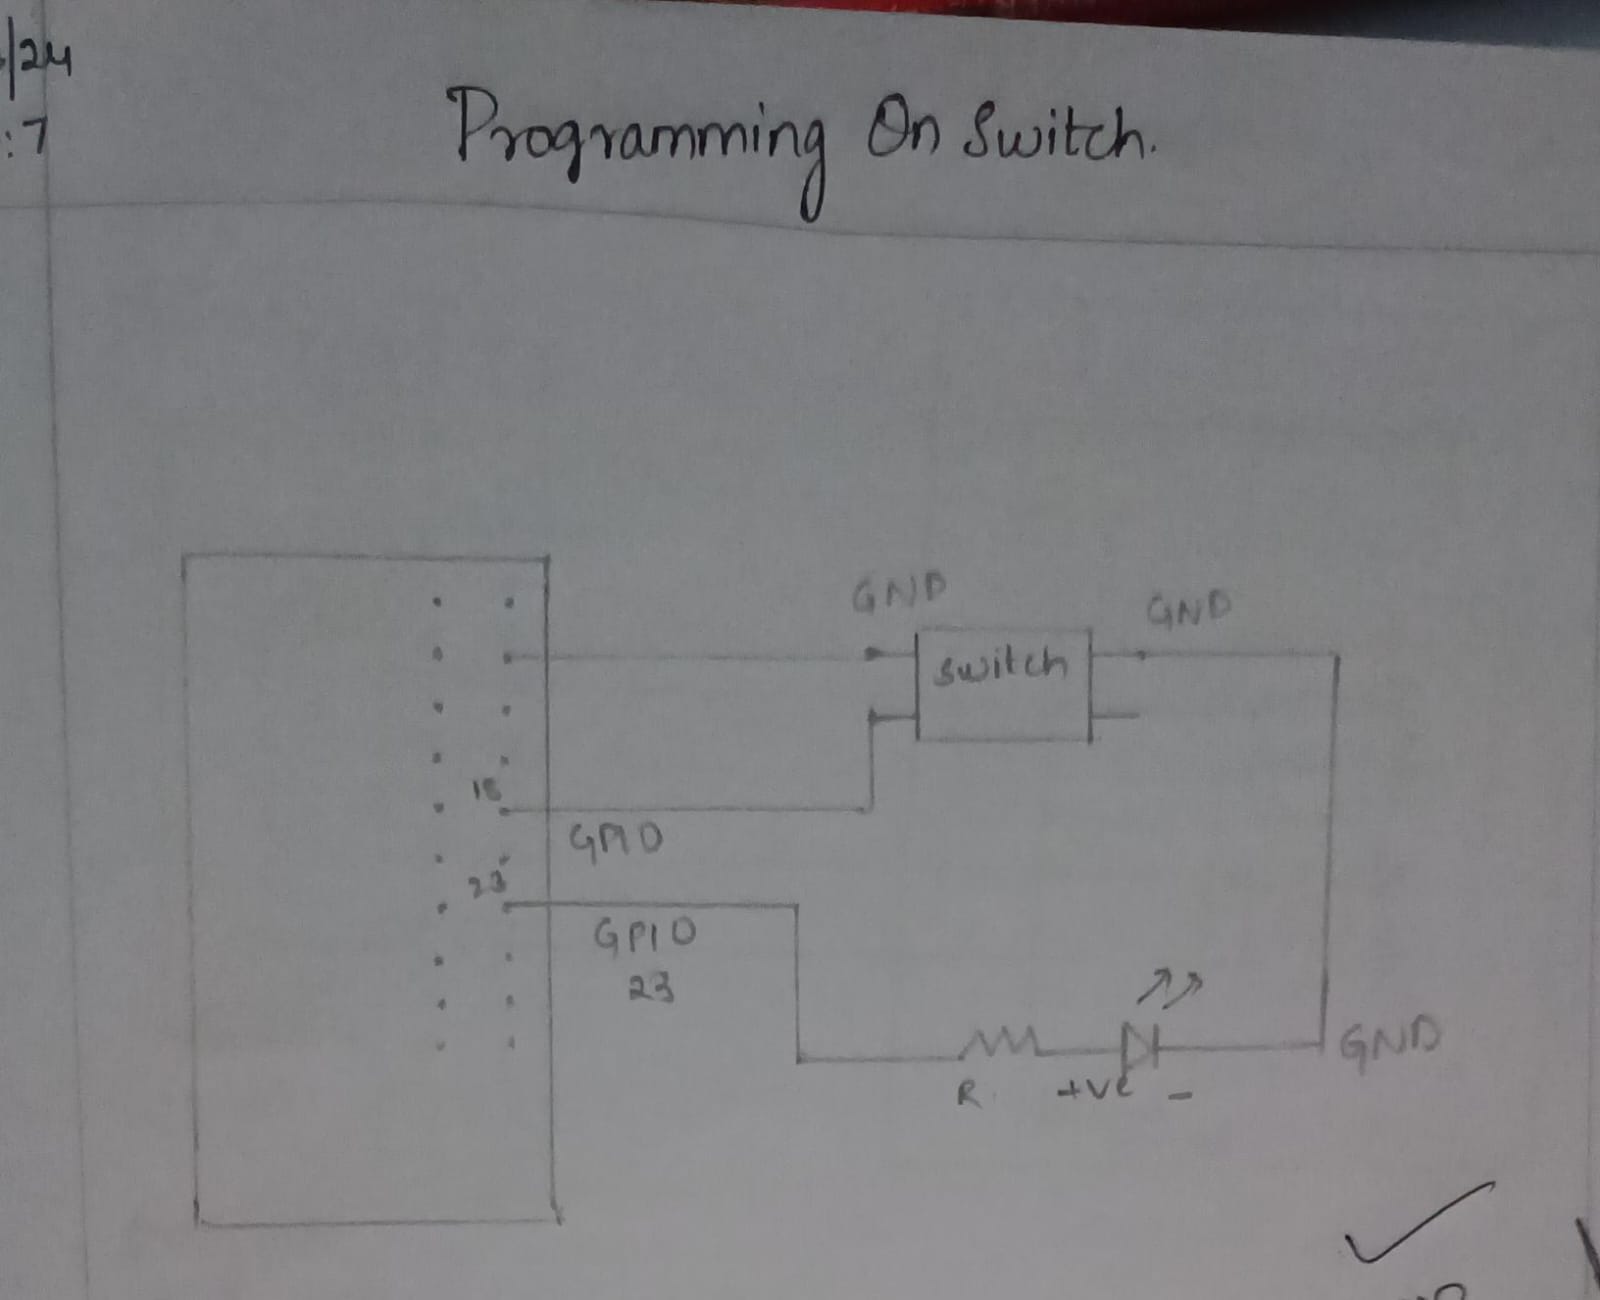 /24
:7
Programming On Switch.
GND
GND
switch
18
GPIO
23
GPIO
23
GND
R.
+ve -